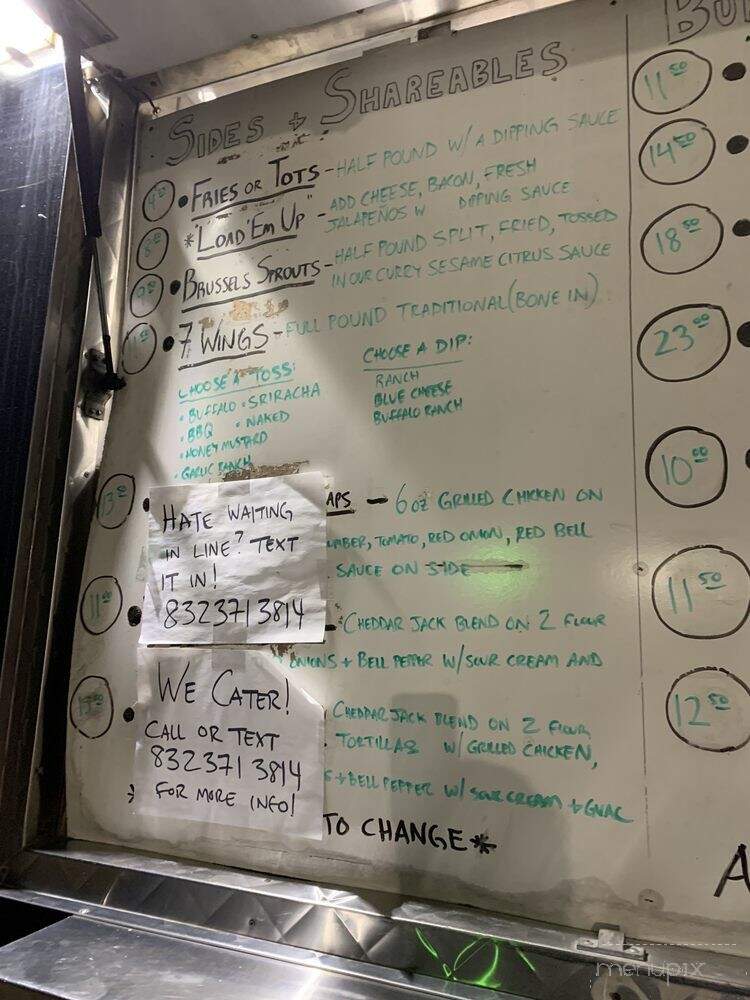 SIDES + SHAREABLES
FRIES OR TOTS - HALF POUND W/ A DIPPING SAUCE
*"LOAD 'EM UP" - ADD CHEESE, BACON, FRESH
JALAPEÑOS W DIPPING SAUCE
BRUSSELS SPROUTS - HALF POUND SPLIT, FRIED, TOSSED
IN OUR CURRY SESAME CITRUS SAUCE
7 WINGS - FULL POUND TRADITIONAL (BONE IN)
CHOOSE A TOSS:
• BUFFALO • SRIRACHA
• BBQ • NAKED
• HONEY MUSTARD
• GARLIC RANCH
CHOOSE A DIP:
RANCH
BLUE CHEESE
BUFFALO RANCH
APS - 6oz GRILLED CHICKEN ON
UMBER, TOMATO, RED ONION, RED BELL
SAUCE ON SIDE
CHEDDAR JACK BLEND ON 2 FLOUR
ONIONS + BELL PEPPER W/ SOUR CREAM AND
CHEDDAR JACK BLEND ON 2 FLOUR
TORTILLAS W/ GRILLED CHICKEN,
S + BELL PEPPER W/ SOUR CREAM + GUAC
TO CHANGE*
HATE WAITING
IN LINE? TEXT
IT IN!
8323713814
WE CATER!
CALL OR TEXT
832371 3814
FOR MORE INFO!
BU
11 50
14 50
18 50
23 00
10 00
11 50
12 50
A
menupix